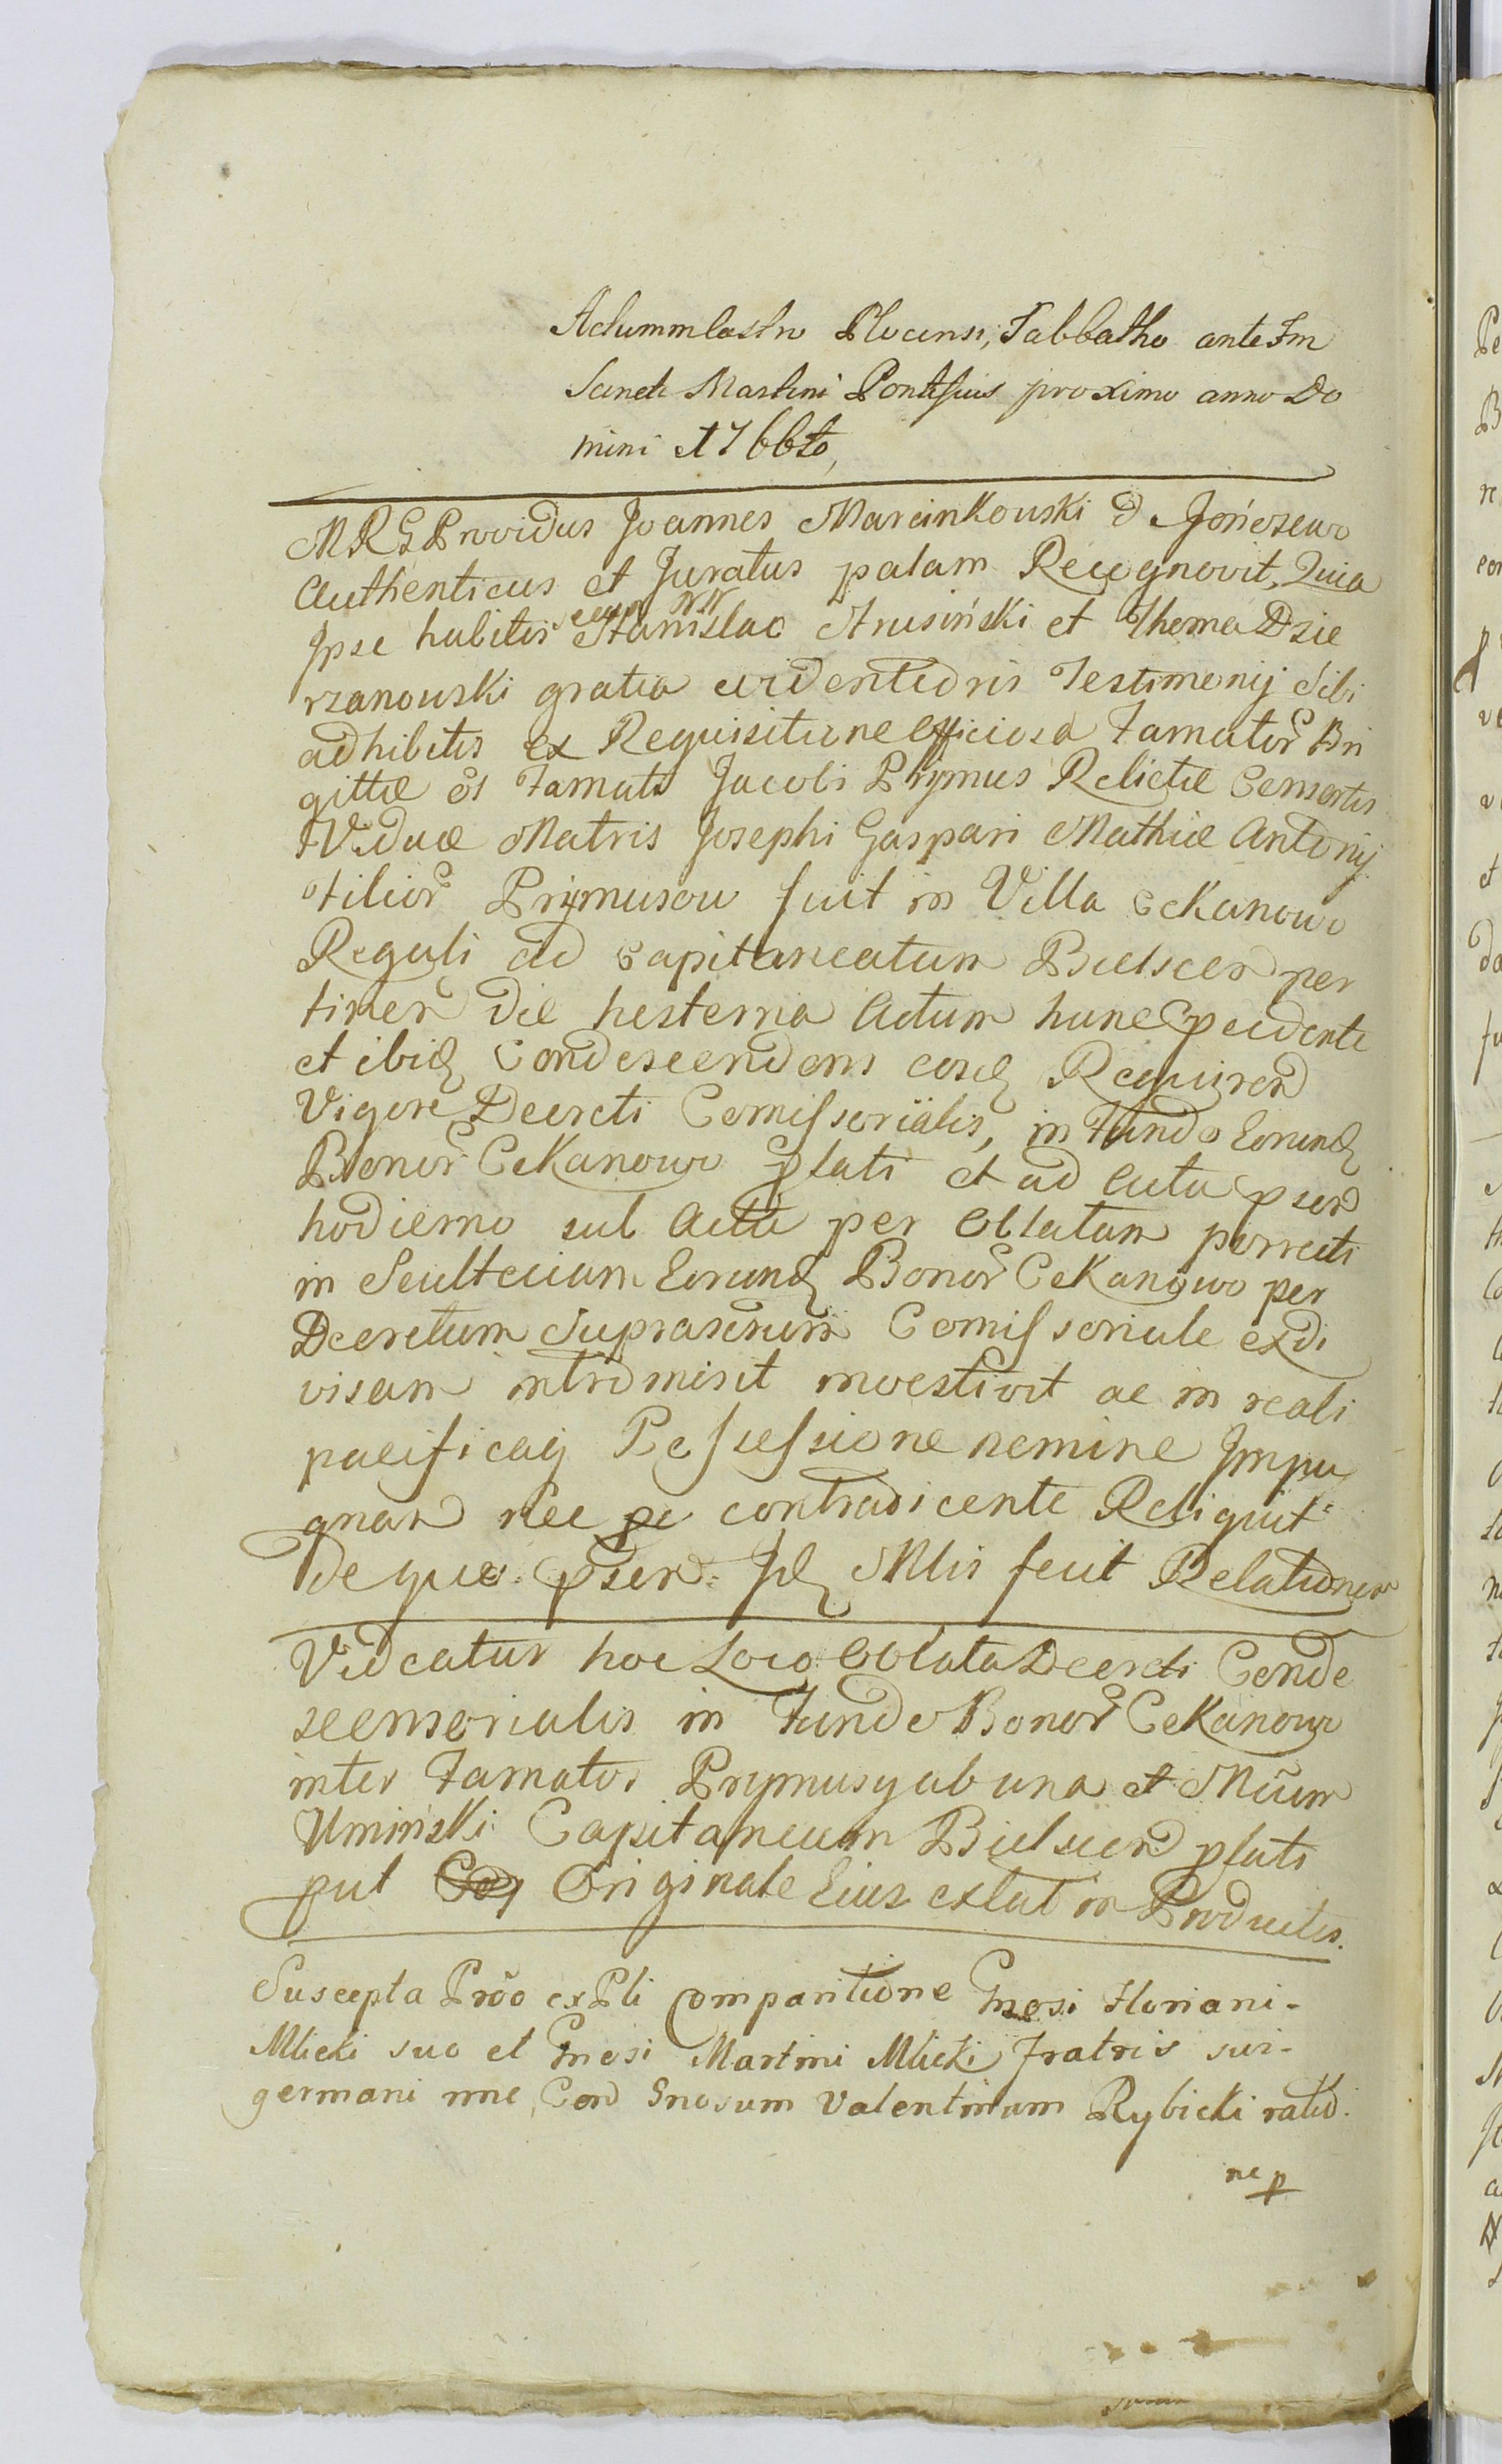 Actum in Castro Plocensi, Sabbatho ante Fm
Sancti Martini Pontificis proximo anno Do
mini 1766to,
MRG Providus Joannes Marcinkouski d
Authenticus et Juratus palam Recognovit, Quia
Ipse habitis cum NN Stanislao Strusiński et Thoma Dzie
rzanouski gratia evidentioris Testimonij Sibi
adhibitis ex Requisitione officiosa Famator Bri
gittæ Famati Jacobi Prymus Relictæ Consortis
Viduæ Matris Josephi Gaspari Mathiæ Antonij
Filior Prymusow fuit in Villa Cekanowo
Regali ad Capitaneatum Bielscen per
tinen die hesterna Actum hunc pcedente
et ibiq Condescendens eosq Requiren
Vigore Decreti Comissorialis, in Fundo Eorunq
Bonor Cekanowo plati et ad Acta psen
hodierno sub Actu per Oblatam porrecti
in Scultetiam Eorunq Bonor Cekanowo per
Decretum Suprascrium Comissoriale exdi
visam intromisit investivit ac in reali
pacificaq Possessione nemine Impu
gnan nec contradicente Reliquit
de quo psen Iq Mlis fecit Relationem
Videatur hoc Loco Oblata Decreti Conde
scensorialis in Fundo Bonor Cekanowo
inter Famatos Prymusy ab una et Mcum
Umiński Capitaneum Bielscen plati
put Originale Eius extat in Productis.
Suscepta Prõo ex Pli Comparitione Gnosi Floriani-
Mlicki suo et Gnosi Martini Mlicki Fratris sui-
germani nne, Con Gnosum Valentinum Rybicki ratio
ne p